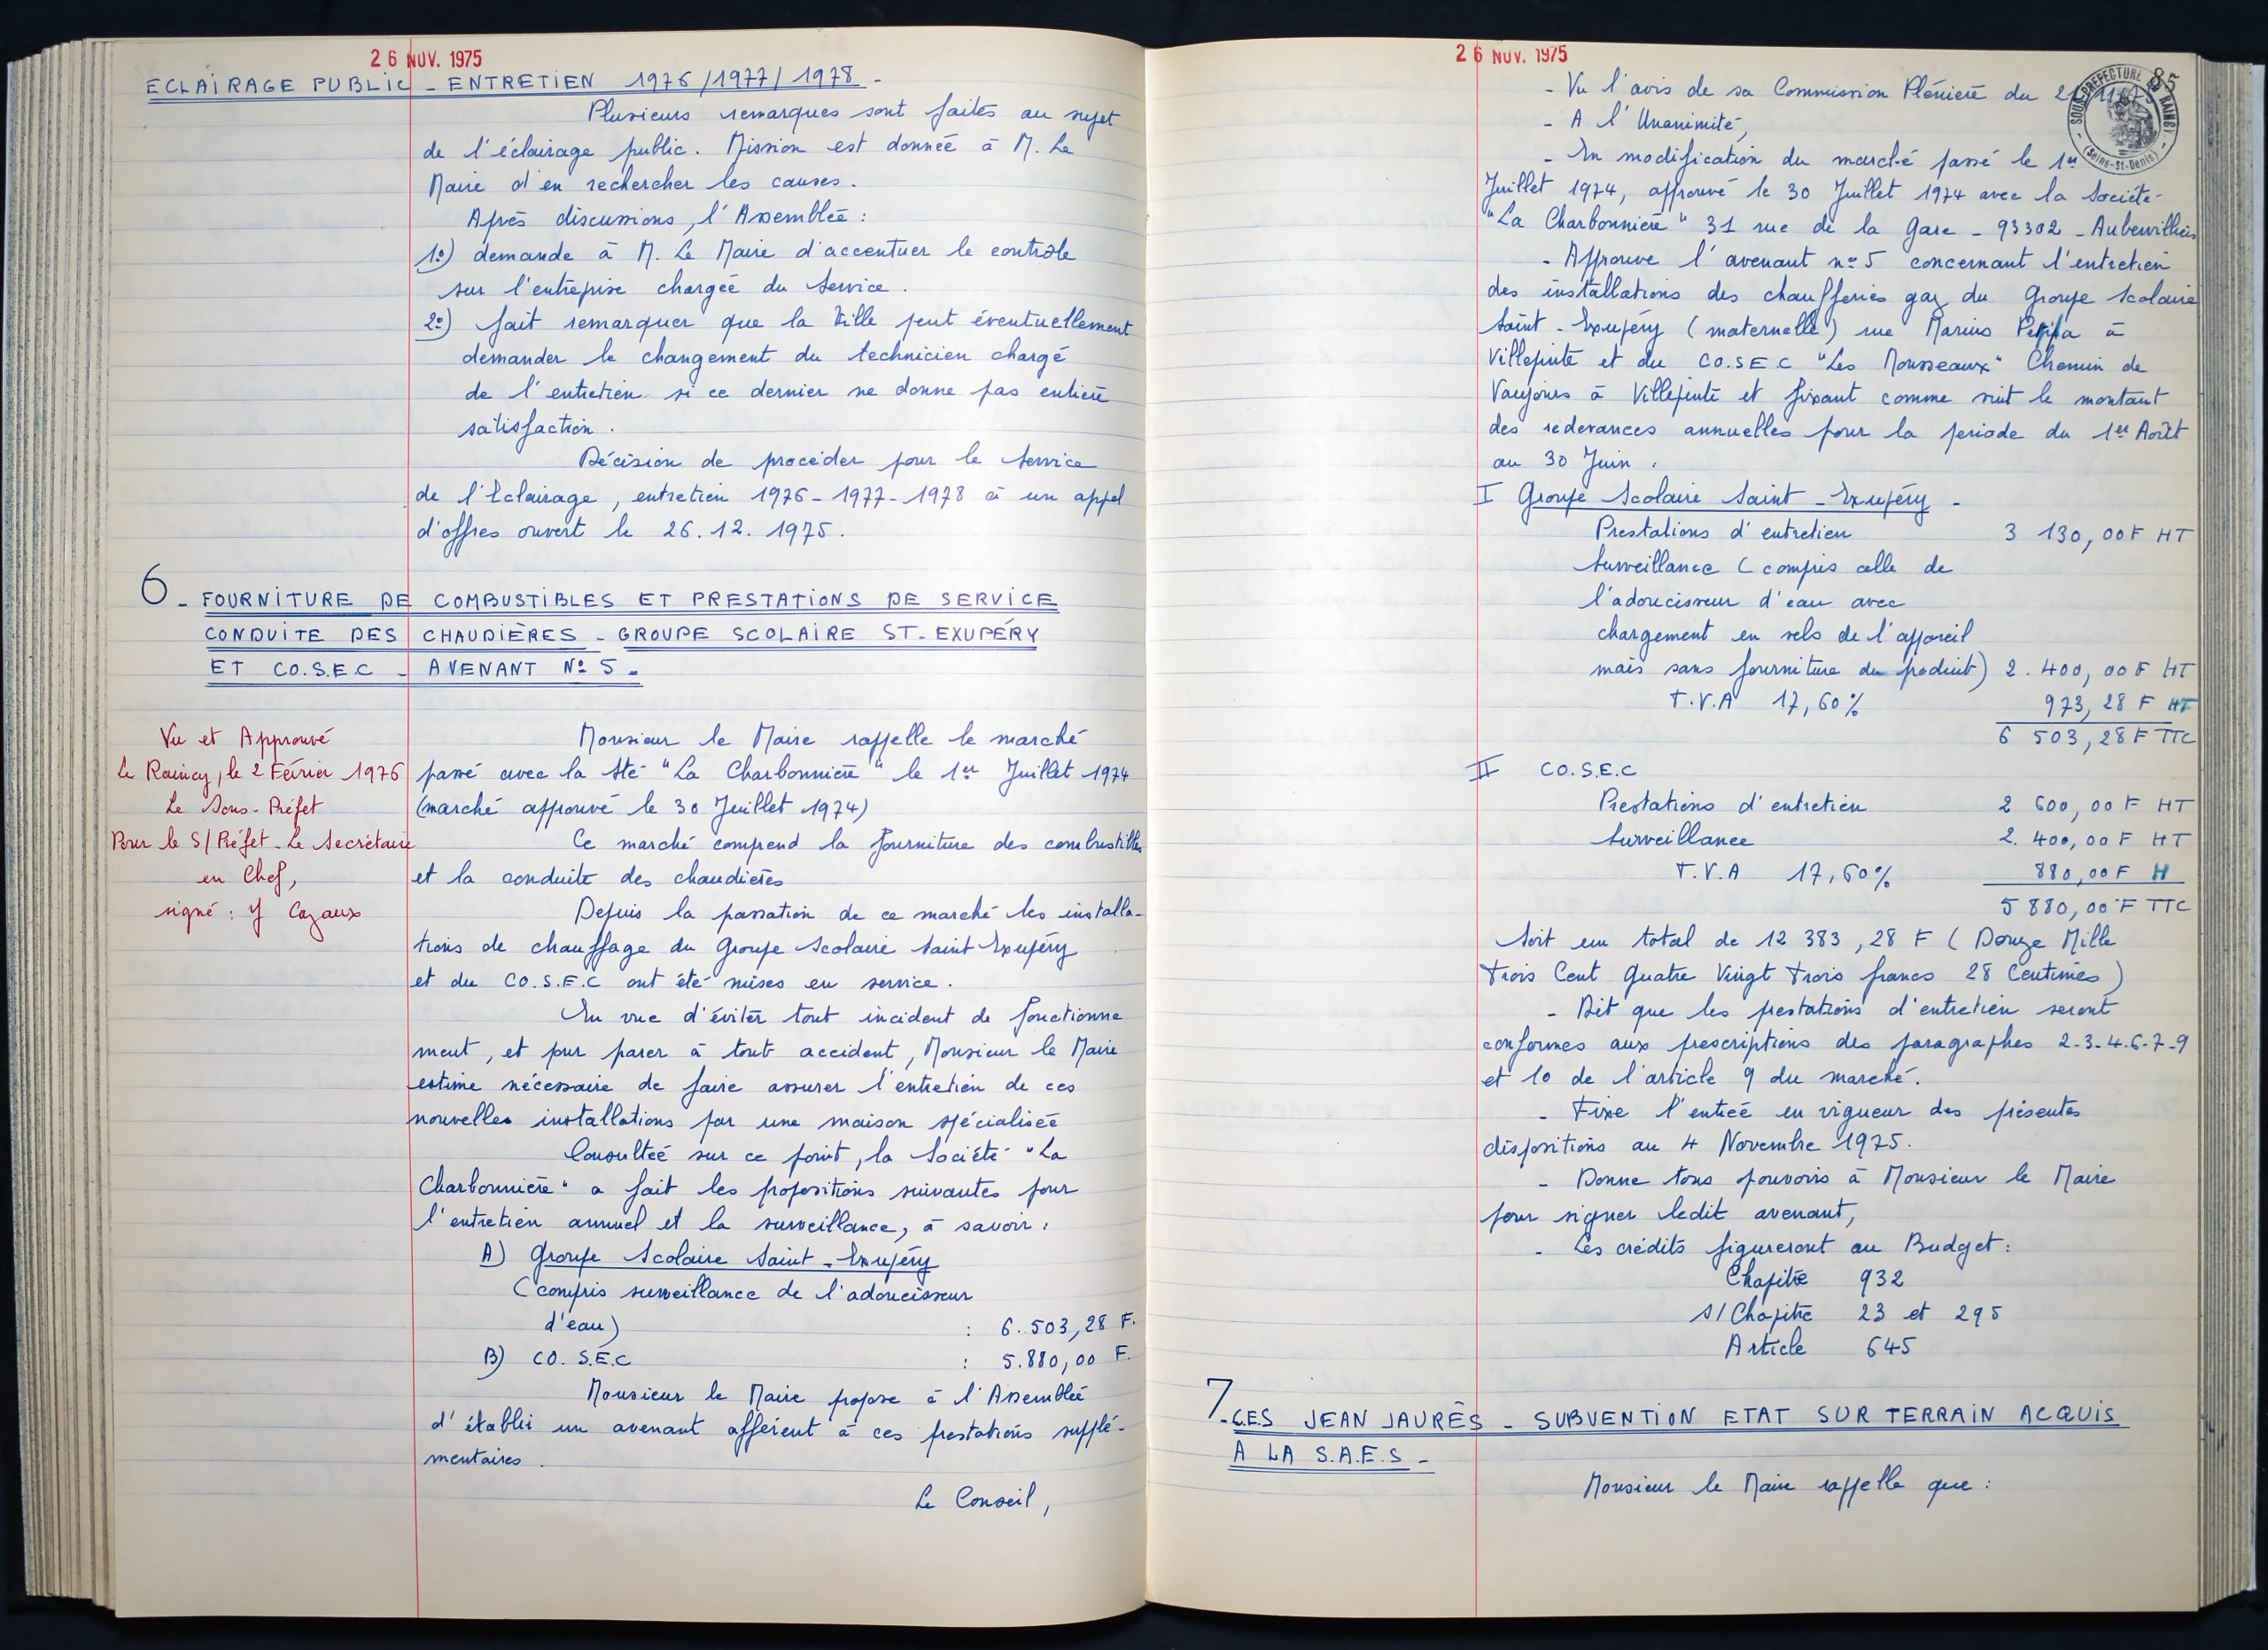 26 NOV. 1975
ECLAIRAGE PUBLIC - ENTRETIEN 1976/1977/1978 -
Plusieurs remarques sont faites au sujet
de l'éclairage public. Mission est donnée à M. Le
Maire d'en rechercher les causes.
Après discussions, l'Assemblée :
1º) demande à M. Le Maire d'accentuer le contrôle
sur l'entreprise chargée du Service.
2º) fait remarquer que la Ville peut éventuellement
demander le changement du technicien chargé
de l'entretien si ce dernier ne donne pas entière
satisfaction.
Décision de procéder pour le Service
de l'Eclairage, entretien 1976-1977-1978 à un appel
d'offres ouvert le 26.12.1975.
6 - FOURNITURE DE COMBUSTIBLES ET PRESTATIONS DE SERVICE
CONDUITE DES CHAUDIÈRES - GROUPE SCOLAIRE ST-EXUPÉRY
ET CO.S.E.C - AVENANT Nº 5 -
Vu et Approuvé
Le Raincy, le 2 Février 1976
Le Sous-Préfet
Pour le S/Préfet - Le Secrétaire
en Chef,
signé : Y Cazaux
Monsieur le Maire rappelle le marché
passé avec la Sté "La Charbonnière" le 1er Juillet 1974
(marché approuvé le 30 Juillet 1974)
Ce marché comprend la fourniture des combustibles
et la conduite des chaudières
Depuis la passation de ce marché les installa-
tions de chauffage du Groupe Scolaire Saint Exupéry
et du CO.S.E.C ont été mises en service.
En vue d'éviter tout incident de fonctionne
ment, et pour parer à tout accident, Monsieur le Maire
estime nécessaire de faire assurer l'entretien de ces
nouvelles installations par une maison spécialisée
Consultée sur ce point, la Société "La
Charbonnière" a fait les propositions suivantes pour
l'entretien annuel et la surveillance, à savoir :
A) Groupe Scolaire Saint-Exupéry
(compris surveillance de l'adoucisseur
d'eau) : 6.503,28 F.
B) CO.S.E.C : 5.880,00 F.
Monsieur le Maire propose à l'Assemblée
d'établir un avenant afférent à ces prestations supplé-
mentaires.
Le Conseil,
26 NOV. 1975
85
SOUS-PREFECTURE RAINCY
(Seine-St-Denis)
- Vu l'avis de sa Commission Plénière du
- A l'Unanimité,
- En modification du marché passé le 1er
Juillet 1974, approuvé le 30 Juillet 1974 avec la Société-
"La Charbonnière" 31 rue de la Gare - 93302 - Aubervilliers
- Approuve l'avenant nº 5 concernant l'entretien
des installations des chaufferies gaz du Groupe Scolaire
Saint-Exupéry (maternelle) rue Marius Petipa à
Villepinte et du CO.S.E.C "Les Mousseaux" Chemin de
Vaujours à Villepinte et fixant comme suit le montant
des redevances annuelles pour la période du 1er Août
au 30 Juin.
I Groupe Scolaire Saint-Exupéry -
Prestations d'entretien 3 130,00 F HT
Surveillance (compris celle de
l'adoucisseur d'eau avec
chargement en sels de l'appareil
mais sans fourniture du produit) 2.400,00 F HT
T.V.A 17,60% 973,28 F HT
6 503,28 F TTC
II CO.S.E.C
Prestations d'entretien 2 600,00 F HT
Surveillance 2.400,00 F HT
T.V.A 17,60% 880,00 F H
5 880,00 F TTC
Soit un total de 12 383,28 F (Douze Mille
Trois Cent Quatre Vingt Trois francs 28 Centimes)
- Dit que les prestations d'entretien seront
conformes aux prescriptions des paragraphes 2-3-4.6-7-9
et 10 de l'article 9 du marché.
- Fixe l'entrée en vigueur des présentes
dispositions au 4 Novembre 1975.
- Donne tous pouvoirs à Monsieur le Maire
pour signer ledit avenant,
- Les crédits figureront au Budget :
Chapitre 932
S/Chapitre 23 et 295
Article 645
7 - C.E.S JEAN JAURÈS - SUBVENTION ETAT SUR TERRAIN ACQUIS
A LA S.A.E.S -
Monsieur le Maire rappelle que :